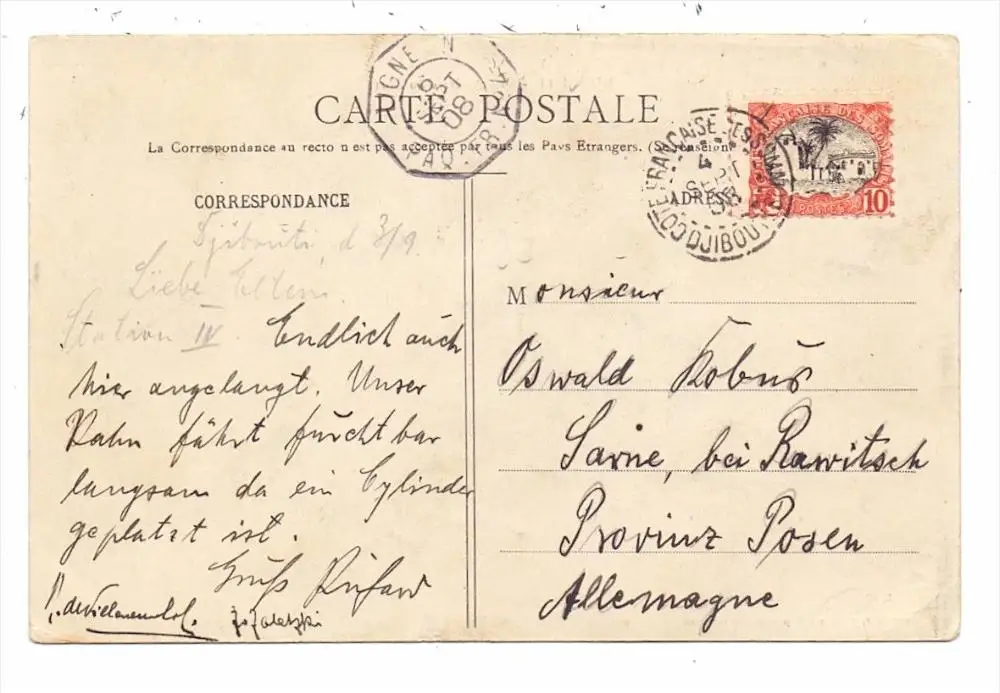 CARTE POSTALE
La Correspondance au recto n'est pas acceptée par tous les Pays Etrangers. (Se renseigner
LIGNE N
6
SEPT
08
PAQ. FR. Nº
CÔTE FRANÇAISE DES SOMALIS
4
SEPT
08
DJIBOUTI
POSTES
10
CORRESPONDANCE
ADRESSE
Djibouti, d 3/9.
Liebe Eltern.
Station IV
Endlich auch
hier angelangt. Unser
Kahn fährt furchtbar
langsam da ein Cylinder
geplatzt ist.
Gruß Richard
Monsieur
Oswald Kobus
Sarne, bei Rawitsch
Provinz Posen
Allemagne